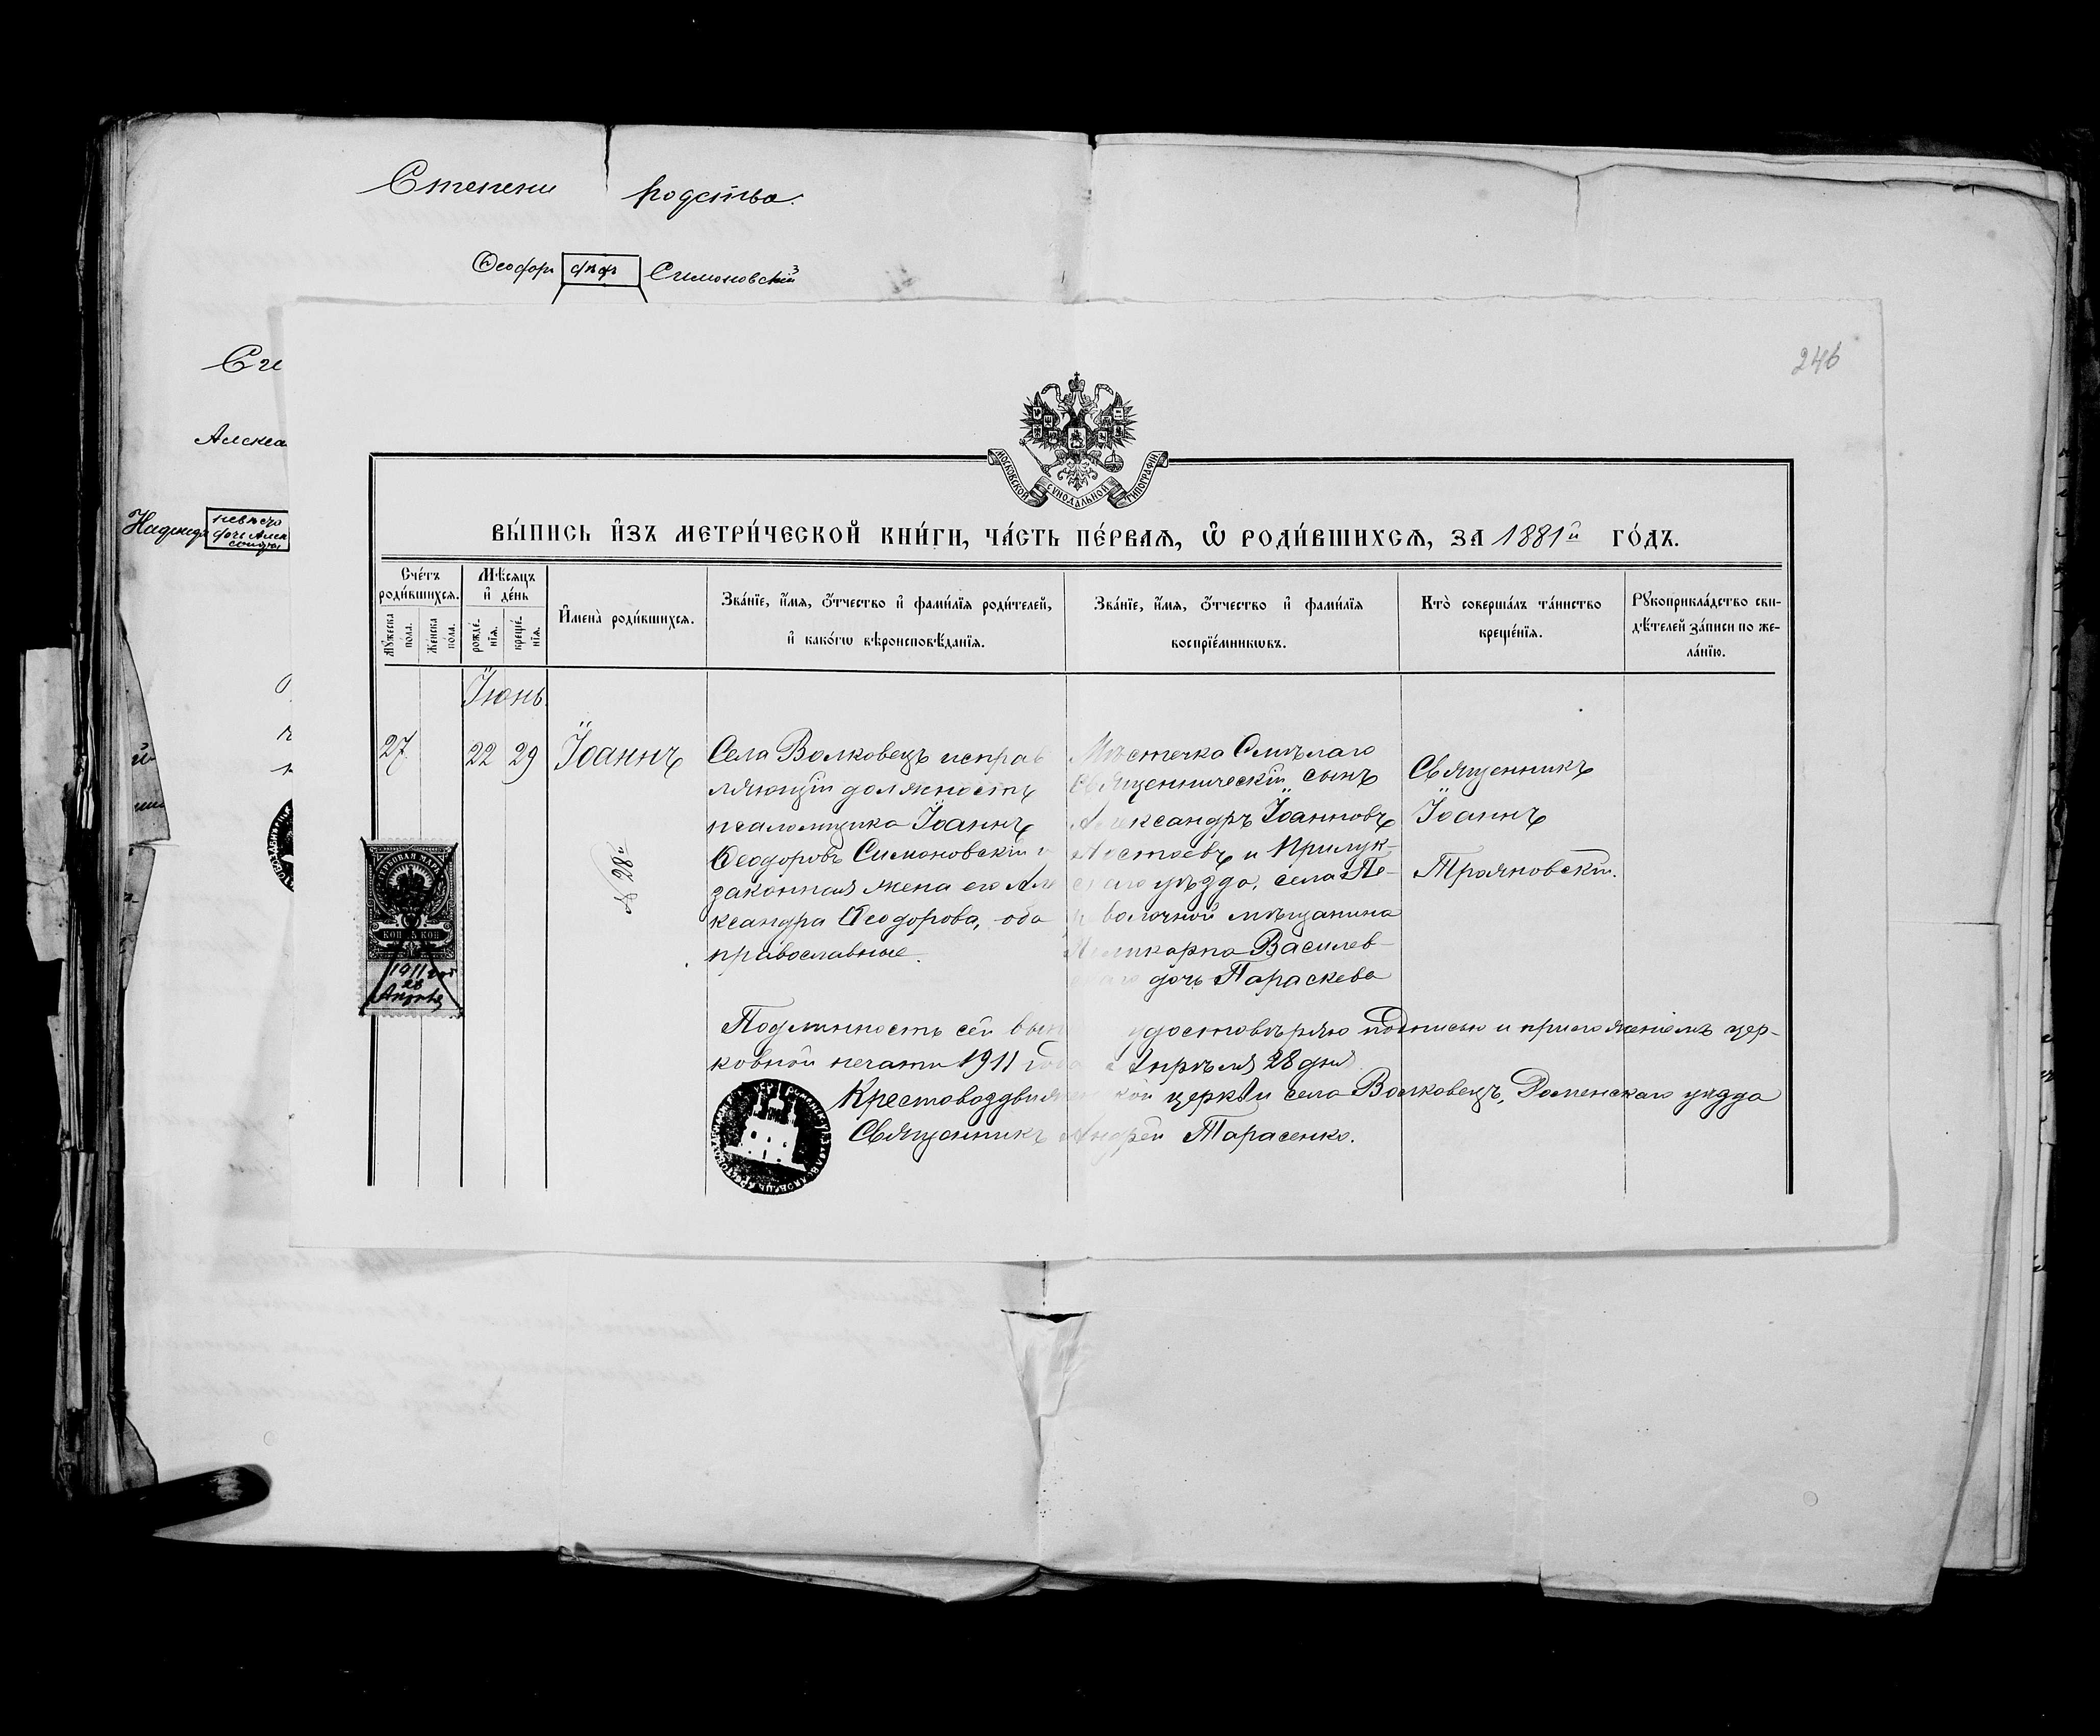 Степени родства.
Ѳеофан дѣдъ Симоновскій
246
Алекса
Надежд
невѣста
дочь Алек
МОСКОВСКОЙ СѴНОДАЛЬНОЙ ТИПОГРАФІИ
ВЫ́ПИСЬ И҆ЗЪ МЕТРИ́ЧЕСКОЙ КНИ́ГИ, ЧА́СТЬ ПЕ́РВАѦ, Ѡ҆ РОДИ́ВШИХСѦ, ЗА 1881й ГО́ДЪ.
Сче́тъ роди́вшихсѧ.
Мꙋ́жеска по́ла.
Же́нска по́ла.
Мѣ́сѧцъ и҆ де́нь
рожде́нїѧ.
креще́нїѧ.
И҆мена̀ роди́вшихсѧ.
Зва́нїе, и҆́мѧ, ѻ҆́тчество и҆ фами́лїѧ роди́телей,
и҆ како́гѡ вѣроисповѣ́данїѧ.
Зва́нїе, и҆́мѧ, ѻ҆́тчество и҆ фами́лїѧ
воспрїе́мникѡвъ.
Кто̀ соверша́лъ та́инство
креще́нїѧ.
Рꙋкоприкла́дство сви-
дѣ́телей за́писи по же-
ла́нїю.
Іюнь
27. 22 29 Іоаннъ
Села Волковецъ исправ
ляющій должность
псаломщика Іоаннъ
Ѳеодоровъ Симоновскій и
законная жена его Але
ксандра Ѳеодорова, оба
православные.
Мѣстечка Смѣлаго
Священническій сынъ
Александръ Іоанновъ
и Прилук-
скаго уѣзда, села Пе-
револочной мѣщанина
Поликарпа Василев-
скаго дочь Параскева
Священникъ
Іоаннъ
Трояновскій.
№ 28й
ГЕРБОВАЯ МАРКА
КОП. 5 КОП
1911 год
28
Апрѣл
Подлинность сей вып удостовѣряю подписью и приложеніемъ цер-
ковной печати 1911 года Апрѣля 28 дня.
Крестовоздвиженской церкви села Волковецъ, Роменскаго уѣзда
Священникъ Андрей Тарасенко.